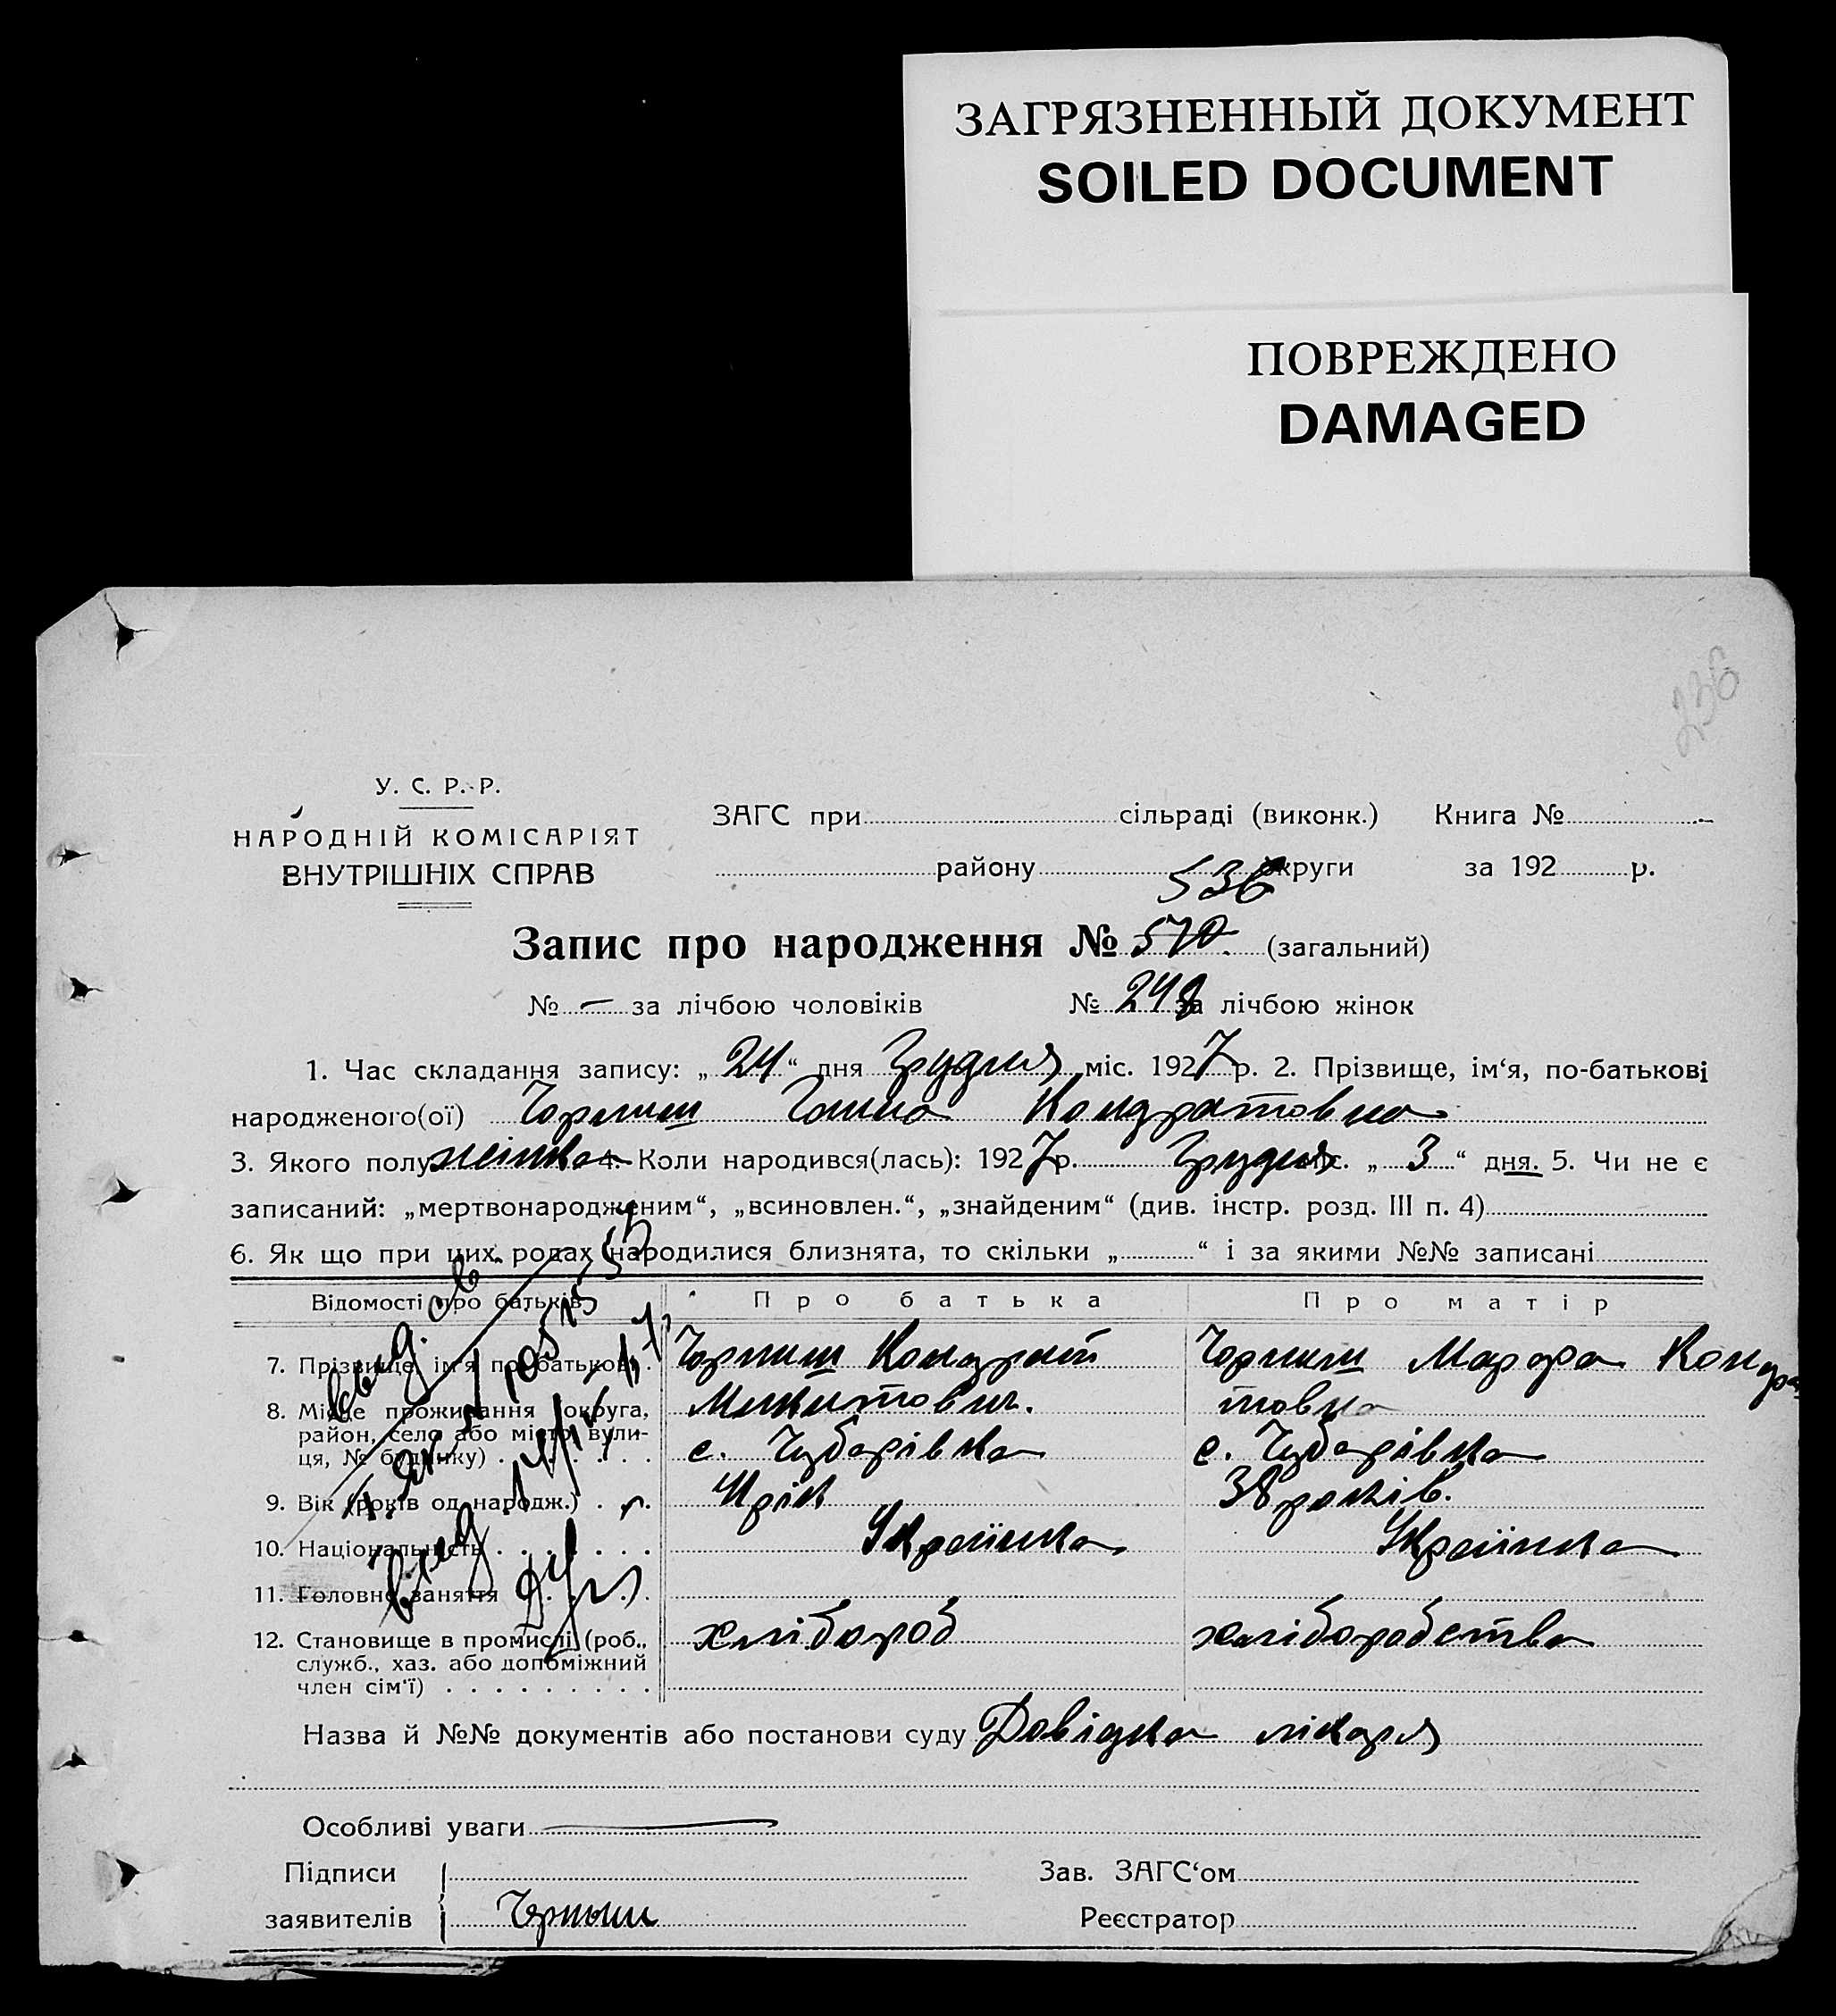 ЗАГРЯЗНЕННЫЙ ДОКУМЕНТ
SOILED DOCUMENT
ПОВРЕЖДЕНО
DAMAGED
236
У. С. Р. Р.
НАРОДНІЙ КОМІСАРІЯТ
ВНУТРІШНІХ СПРАВ
ЗАГС при сільраді (виконк.) Книга №
району округи за 192 р.
536
Запис про народження № 570. (загальний)
№ — за лічбою чоловіків № 248 за лічбою жінок
1. Час складання запису: „ 24 “ дня Грудня міс. 1927 р. 2. Прізвище, ім‘я, по-батькові
народженого(ої) Чорниш Ганна Кондратовна
3. Якого полу жінка 4. Коли народився(лась): 1927 р. Грудня міс. „ 3 “ дня. 5. Чи не є
записаний: „мертвонародженим“, „всиновлен.“, „знайденим“ (див. інстр. розд. III п. 4)
6. Як що при цих родах народилися близнята, то скільки „ “ і за якими №№ записані
Відомості про батьків Про батька Про матір
7. Прізвище, ім‘я по-батькові Чорниш Кондрат Чорниш Марфа Кондра
Микитович. товна
8. Місце проживання (округа,
район, село або місто, вули-
ця, № будинку) с. Чубарівка с. Чубарівка
9. Вік (років од народж.) 38 років.
10. Національність Українка Українка
11. Головне заняття
12. Становище в промислі (роб., хлібороб хліборобства
служб., хаз. або допоміжний
член сім‘ї)
Назва й №№ документів або постанови суду Довідка лікаря
Особливі уваги —
Підписи Зав. ЗАГС‘ом
заявителів Черныш Реєстратор